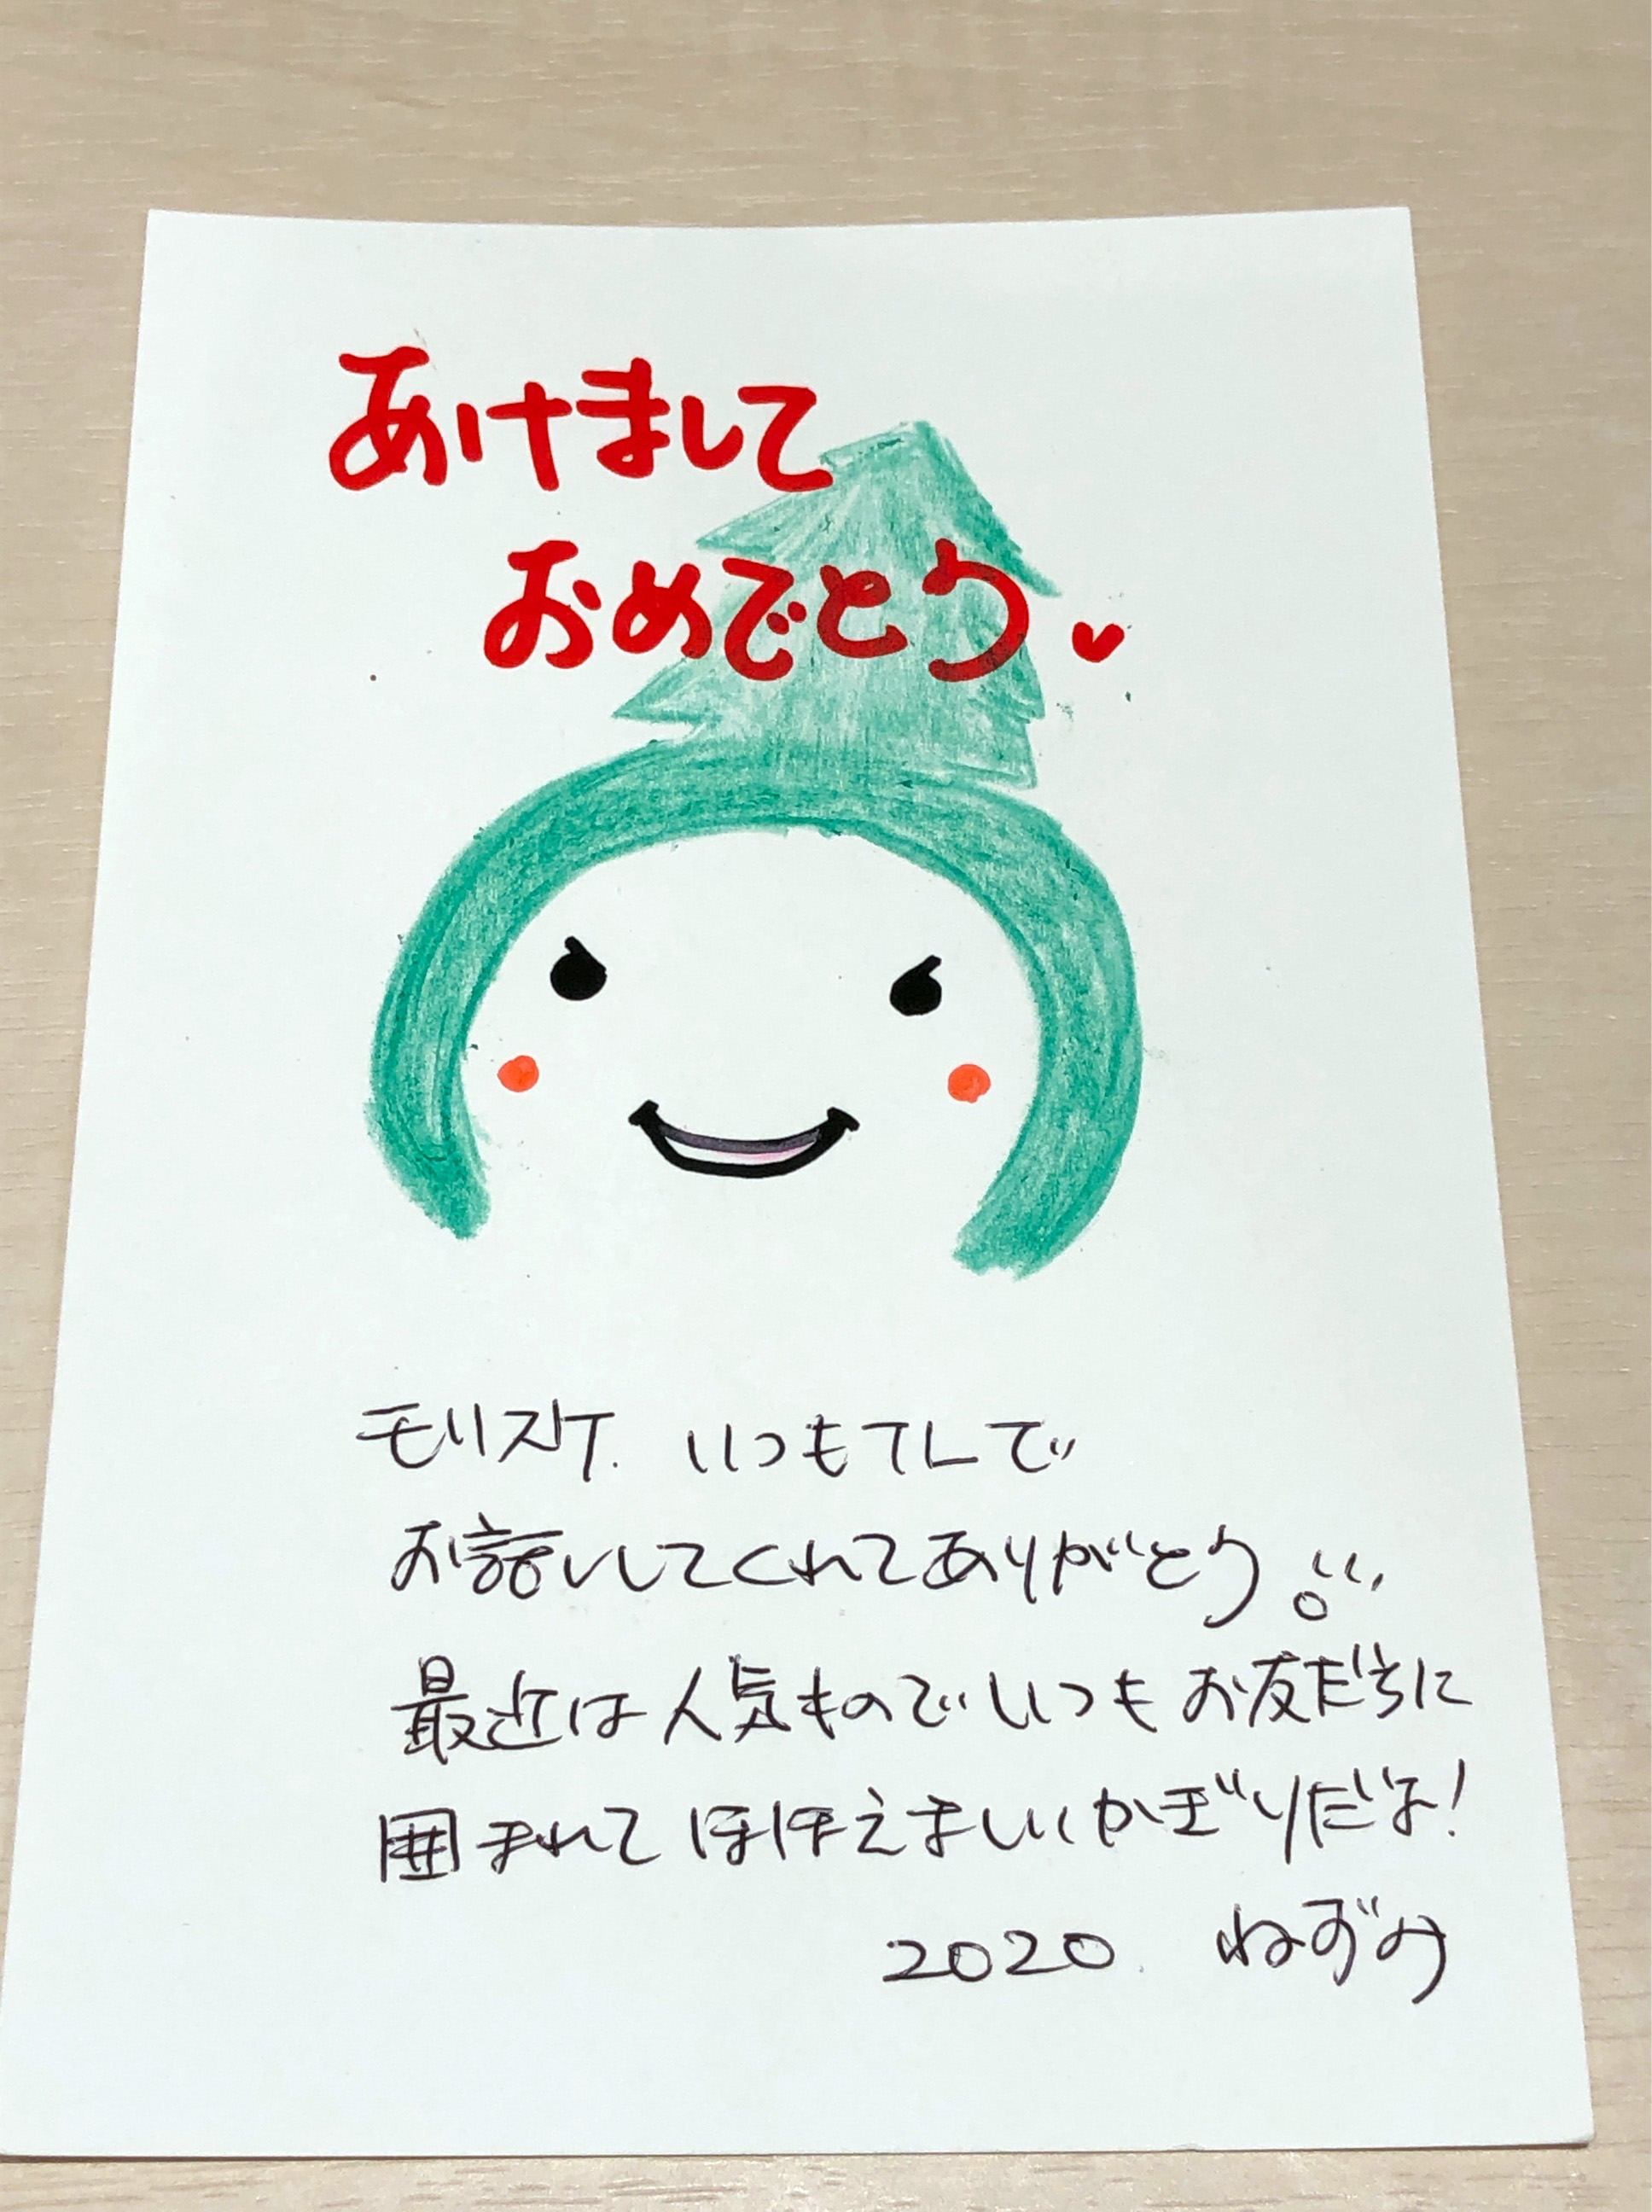 あけまして
おめでとう
モリスケ. いつもTLで
お話ししてくれてありがとう
最近は人気ものでいつもお友だちに
囲まれてほほえましいかぎりだよ!
2020. ねずみ